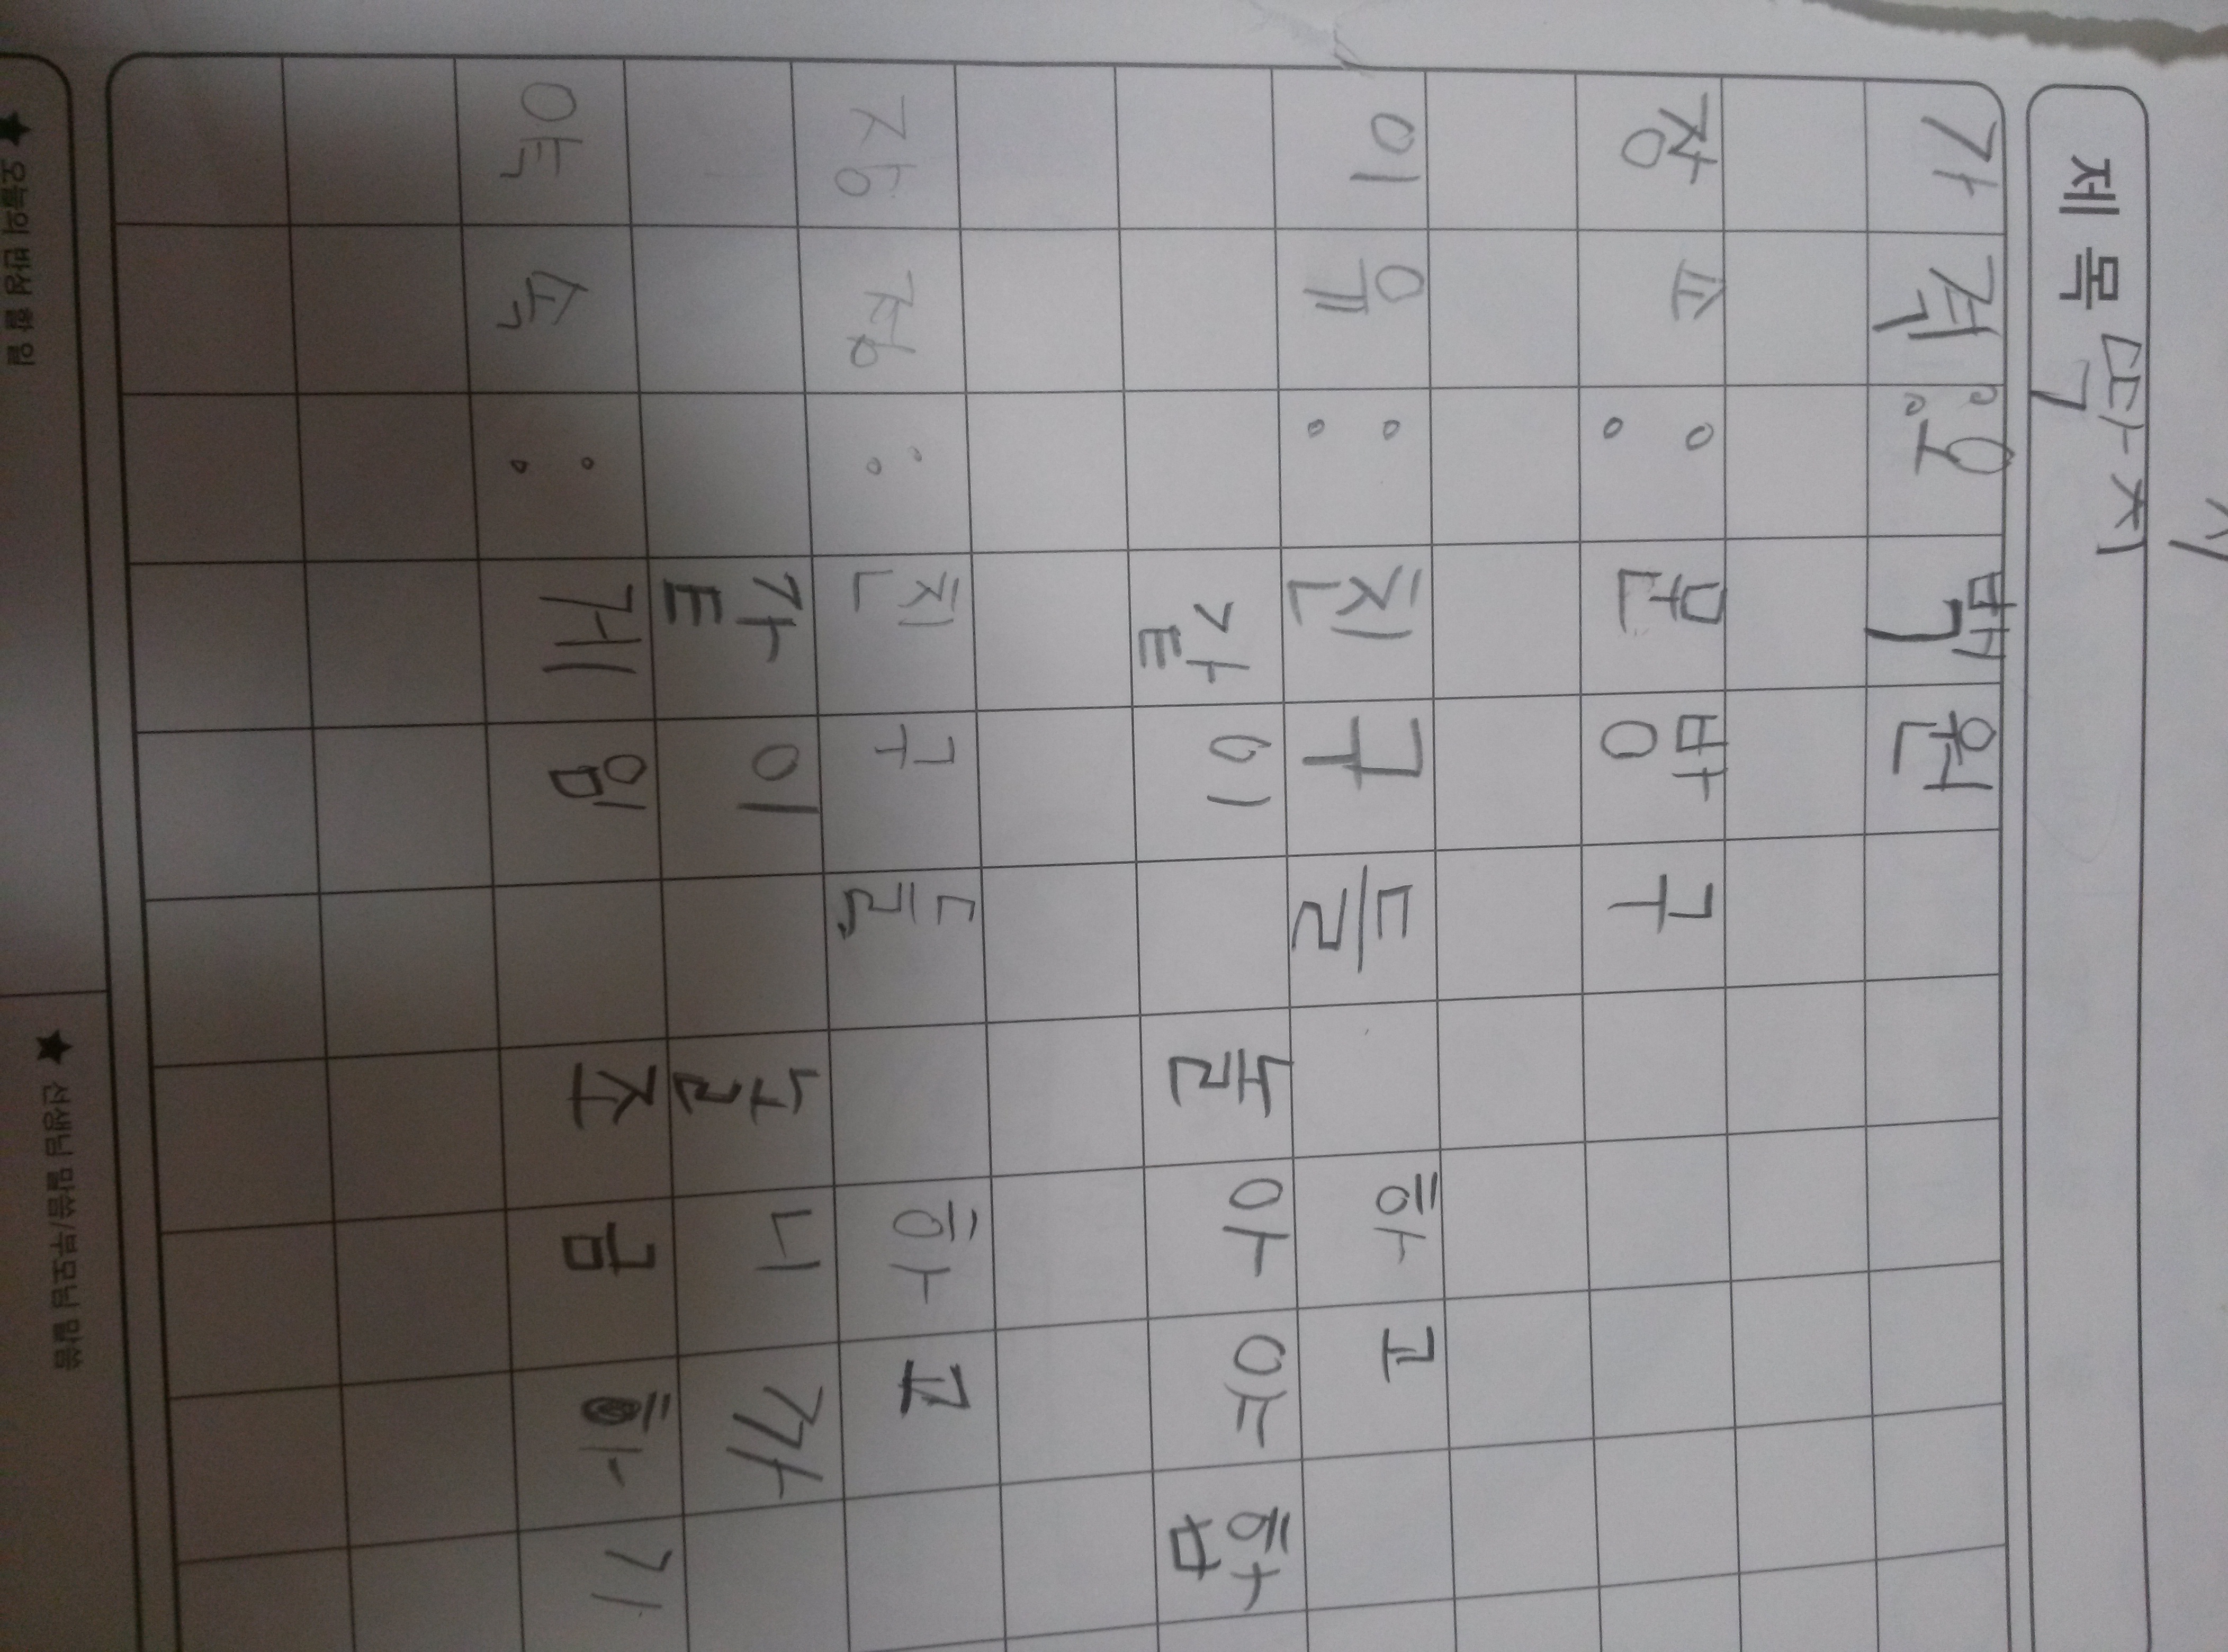 제목 딱지
가격:오백원
장소:문방구
이유:친구들 하고
같이 놀아야함
장점:친구들 하고
같이 놀니까
약속:게임 조금하기
★ 오늘의 반성 할 일
★ 선생님 말씀/부모님 말씀